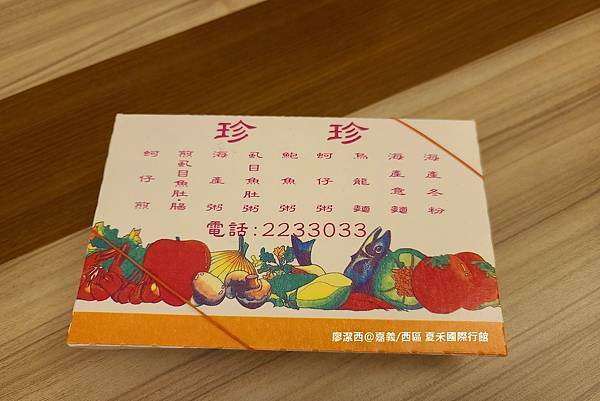 珍珍
海產冬粉
海產意麵
烏龍麵
蚵仔粥
鮑魚粥
虱目魚肚粥
海產粥
煎虱目魚肚.腸
蚵仔煎
電話:2233033
廖潔西@嘉義/西區 夏禾國際行館